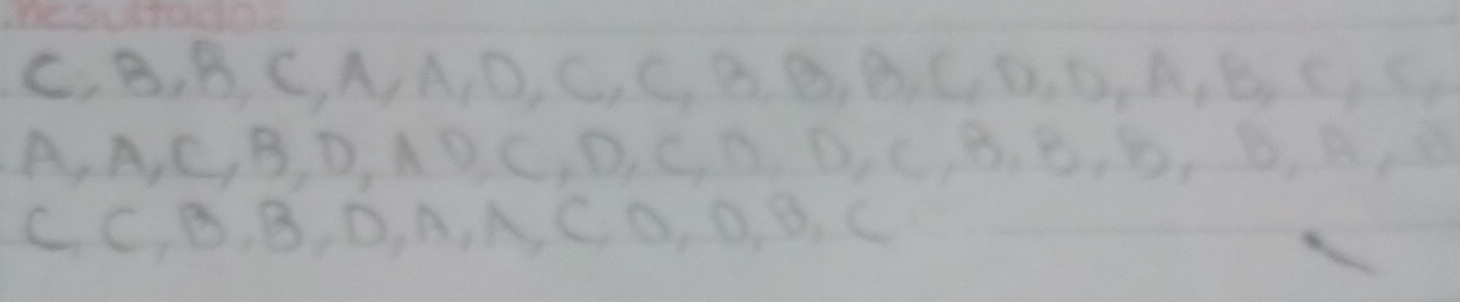 Resultado:
C, B, B, C, A, A, D, C, C, B, B, B, C, D, D, A, B, C, C,
A, A, C, B, D, A D, C, D, C, D, D, C, B, B, B, B, A,
C, C, B, B, D, A, A, C D, D, B, C